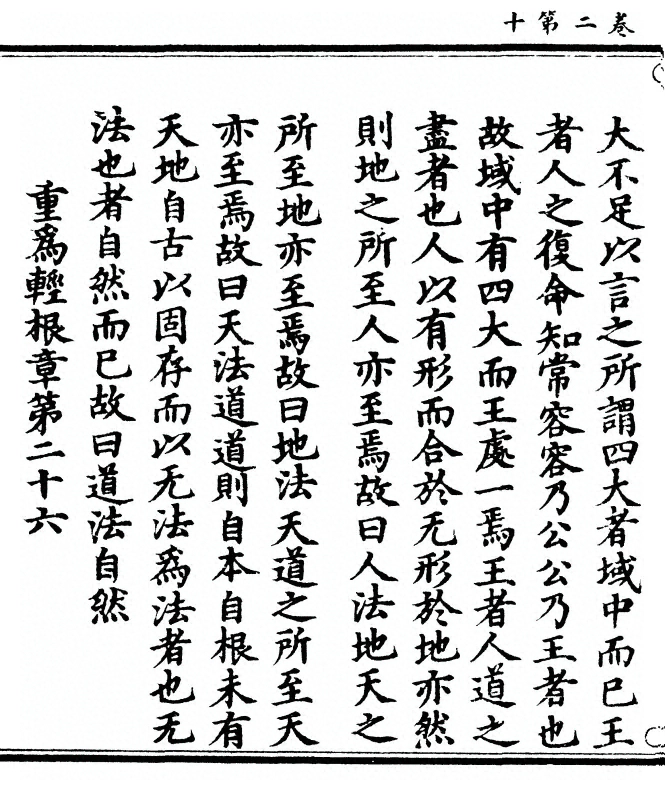 十第二卷
大不足以言之所謂四大者域中而已王
者人之復命知常容容乃公公乃王者也
故域中有四大而王處一焉王者人道之
盡者也人以有形而合於无形於地亦然
則地之所至人亦至焉故曰人法地天之
所至地亦至焉故曰地法天道之所至天
亦至焉故曰天法道道則自本自根未有
天地自古以固存而以无法爲法者也无
法也者自然而已故曰道法自然
重爲輕根章第二十六